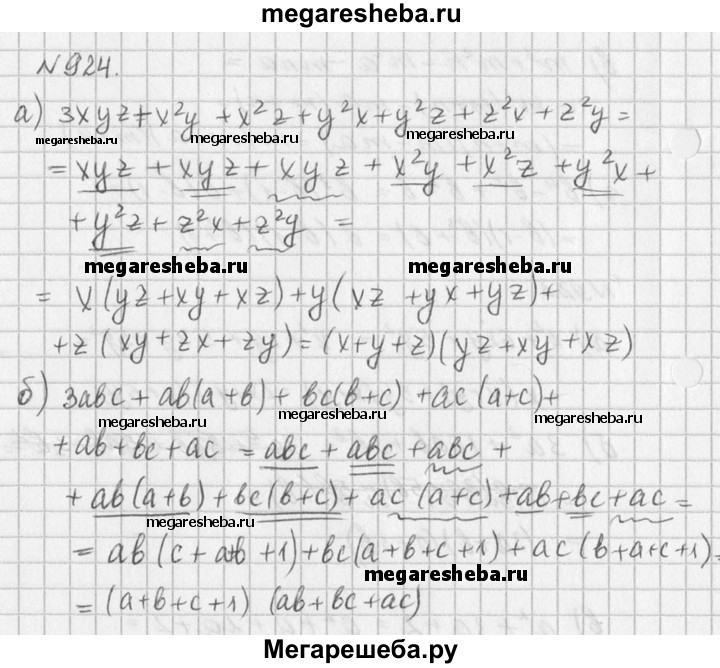 megaresheba.ru
N 924.
а) 3xyz + x²y + x²z + y²x + y²z + z²x + z²y =
megaresheba.ru megaresheba.ru megaresheba.ru
= xyz + xyz + xyz + x²y + x²z + y²x +
+ y²z + z²x + z²y =
megaresheba.ru megaresheba.ru
= x(yz + xy + xz) + y(xz + yx + yz) +
+ z(xy + zx + zy) = (x + y + z)(yz + xy + xz)
б) 3abc + ab(a+b) + bc(b+c) + ac(a+c) +
megaresheba.ru megaresheba.ru megaresheba.ru
+ ab + bc + ac = abc + abc + abc +
+ ab(a+b) + bc(b+c) + ac(a+c) + ab + bc + ac =
megaresheba.ru
= ab(c + a+b + 1) + bc(a+b+c+1) + ac(b+a+c+1) =
megaresheba.ru
= (a+b+c+1) (ab+bc+ac)
Мегарешеба.ру